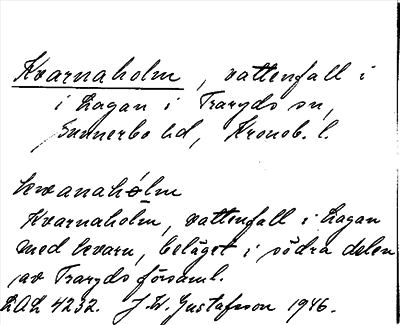 Kvarnaholm, vattenfall i
i Lagan i Traryds sn,
Sunnerbo hd, Kronob. l.
kwanahólm
Kvarnaholm, vattenfall i Lagan
med kvarn, beläget i södra delen
av Traryds församl.
LAL 4232. J. A. Gustafsson 1946.